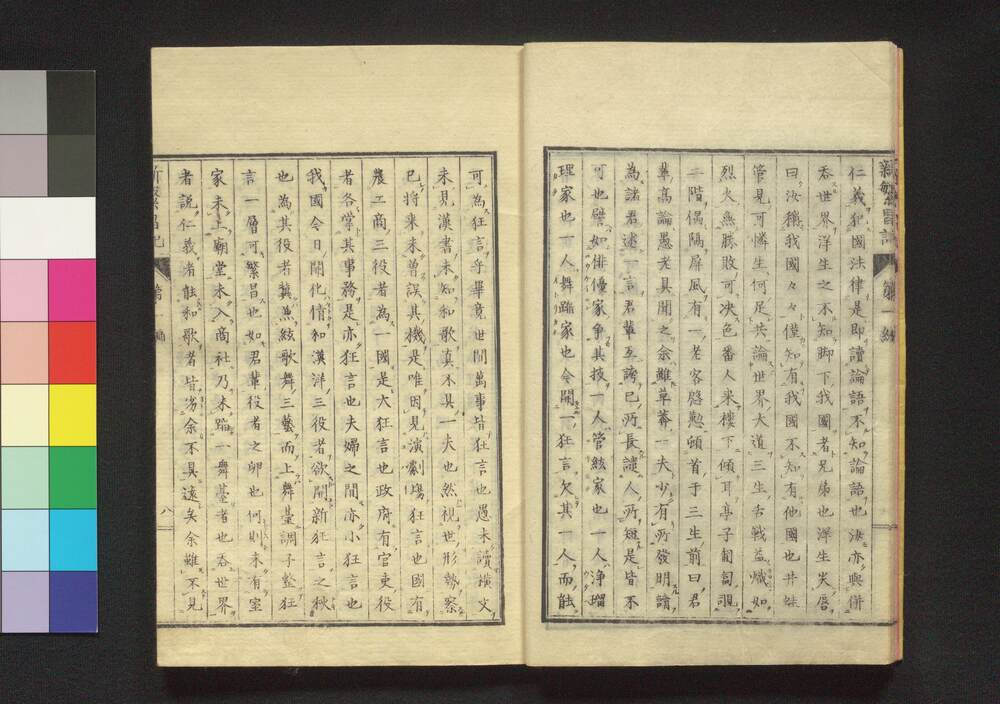 仁義犯國法律是即讀論語不知論語也汝亦與併
呑世界洋生之不知脚下我國者兄弟也洋生尖唇
曰汝稱我國我國々々僅知有我國不知有他國也井蛙
管見可憐生何足共論世界大道三生舌戰益熾如
烈火無勝敗可决色番人來樓下傾耳亭子匍匐覗
階偶隔屏風有一老客慇懃頓首于三生前曰君
輩高論愚老具聞之余雖草莽一夫少有所發明請
為諸君述一言君輩互誇己所長譴人所短是皆不
可也譬如俳優家爭其技一人管絃家也一人浄瑠
理家也一人舞踏家也今開一狂言欠其一人而能
可為狂言乎畢竟世間萬事皆狂言也愚未讀横文
未見漢書未知和歌真不具一夫也然視世形勢察
已將來未曽誤其機是唯因見演劇塲狂言也國有
農工商三役者為一國是大狂言也政府有官吏役
者各掌其事務是亦狂言也夫婦之間亦小狂言也
我國今日開化備和漢洋三役者欲開新狂言之秋
也為其役者冀無絃歌舞三藝而上舞臺調子整狂
言一層可繁昌也如君輩役者之卵也何則未有室
家未上廟堂未入商社乃未蹈一舞臺者也呑世界
者説仁義者能和歌者皆劣余不具遠矣余雖不見
八